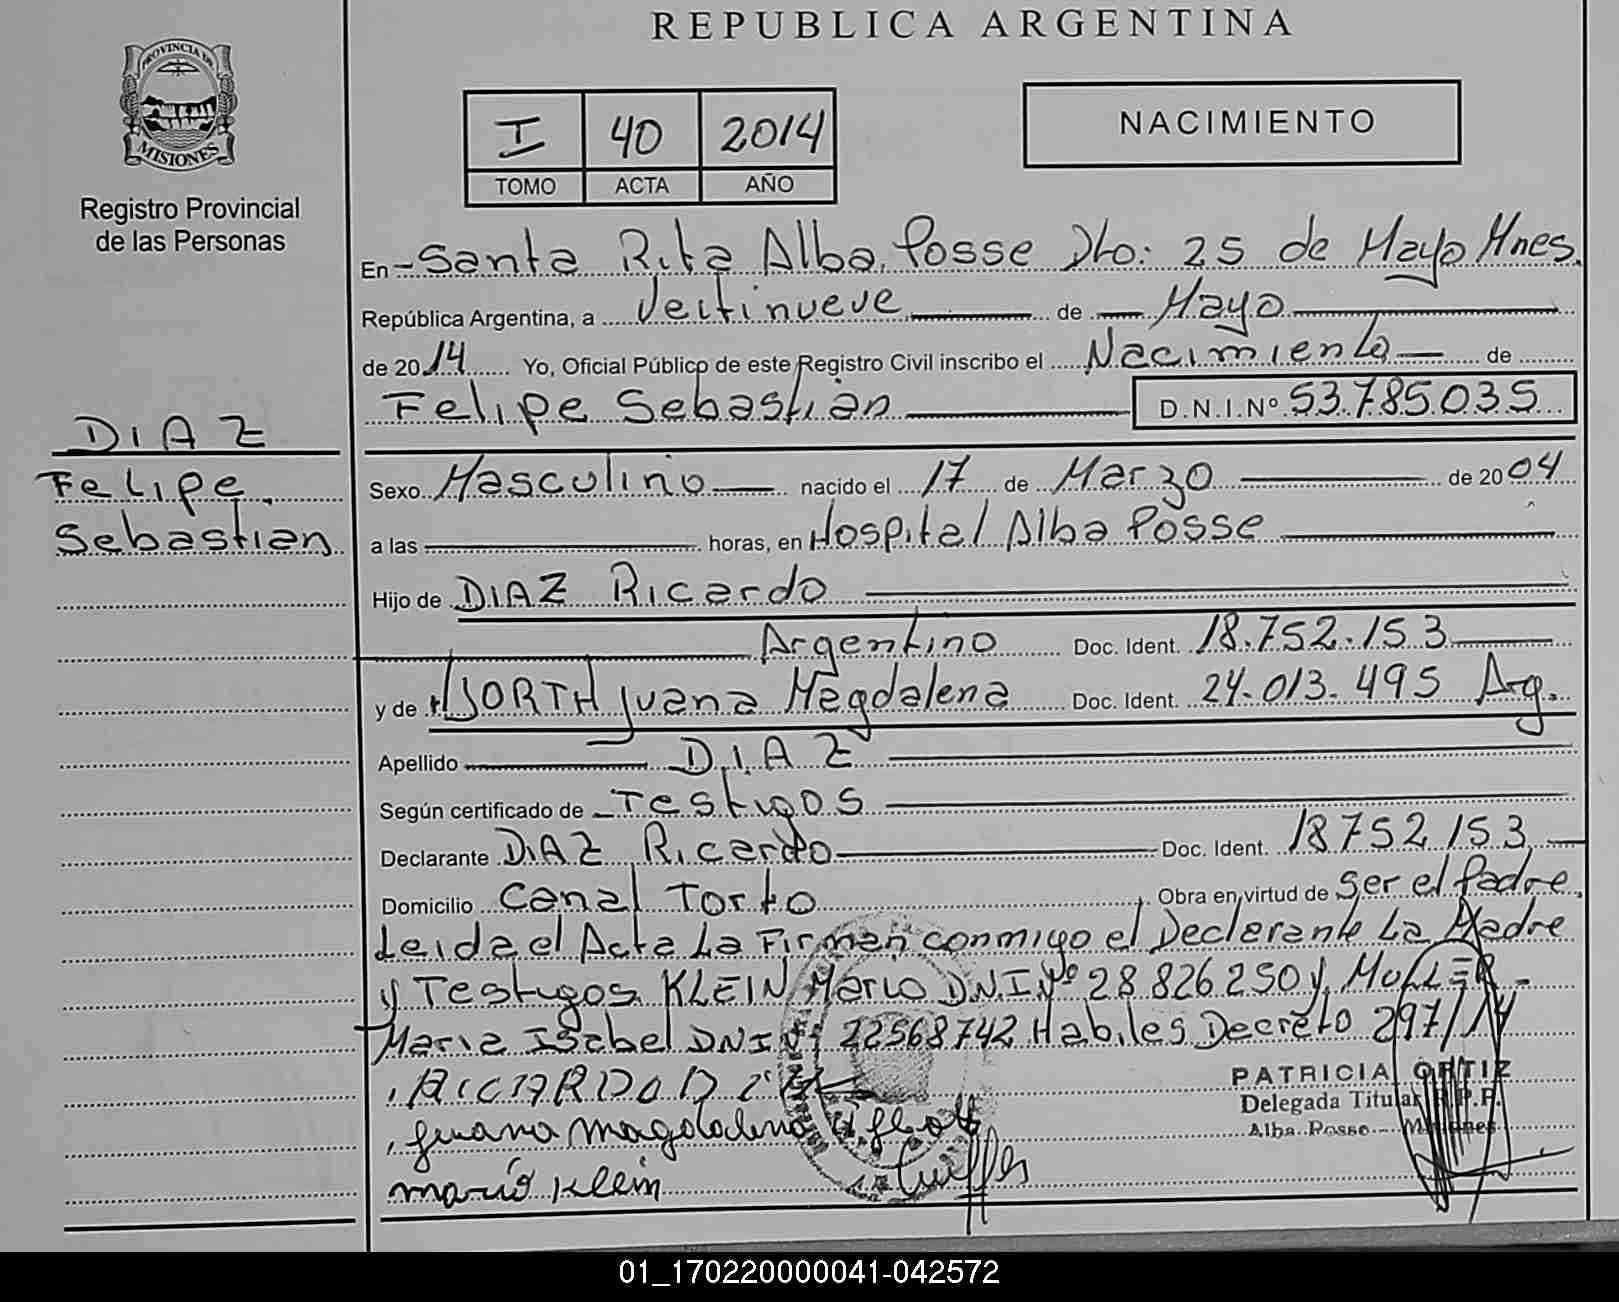 REPUBLICA ARGENTINA
PROVINCIA DE
MISIONES
Registro Provincial
de las Personas
I 40 2014
TOMO ACTA AÑO
NACIMIENTO
En Santa Rita Alba Posse Dto: 25 de Mayo Mnes.
República Argentina, a Veitinueve de Mayo
de 2014 Yo, Oficial Público de este Registro Civil inscribo el Nacimiento de
Felipe Sebastián D.N.I.Nº 53.785.035
DIAZ
Felipe
Sebastian
Sexo Masculino nacido el 17 de Marzo de 2004
a las horas, en Hospital Alba Posse
Hijo de DIAZ Ricardo
Argentino Doc. Ident. 18.752.153
y de Juana Magdalena Doc. Ident. 24.013.495 Arg.
Apellido DIAZ
Según certificado de Testigos
Declarante DIAZ Ricardo Doc. Ident. 18752153
Domicilio Canal Torto Obra en virtud de Ser el Padre,
Leida el Acta La Firman conmigo el Declarante La Madre
y Testigos KLEIN Mario DNI Nº 28826250 y MULLER
Maria Isabel DNI Nº 22568742 Habiles Decreto 297/14
RICARDO D
PATRICIA ORTIZ
Delegada Titular R.P.P.
Alba Posse - Misiones
Juana Magdalena
Mario Klein
01_170220000041-042572